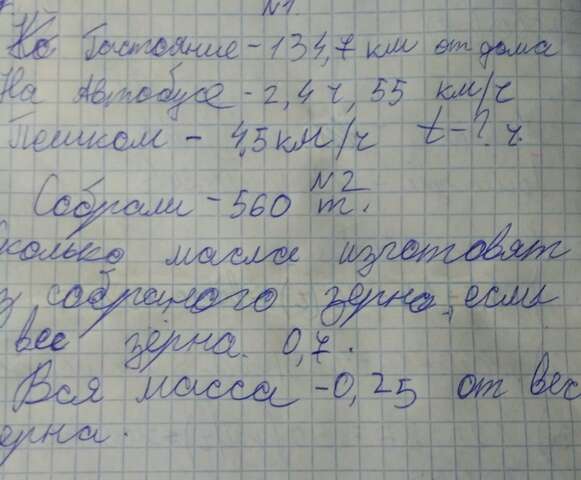 N1.
Ко Гостояние - 134,7 км от дома
На Автобусе - 2,4 ч, 55 км/ч
Пешком - 4,5 км/ч t - ? ч.
N2
Собрали - 560 т.
Сколько масла изготовят
з собраного зерна, если
вес зерна. 0,7.
Вся масса - 0,25 от вес
ерна.